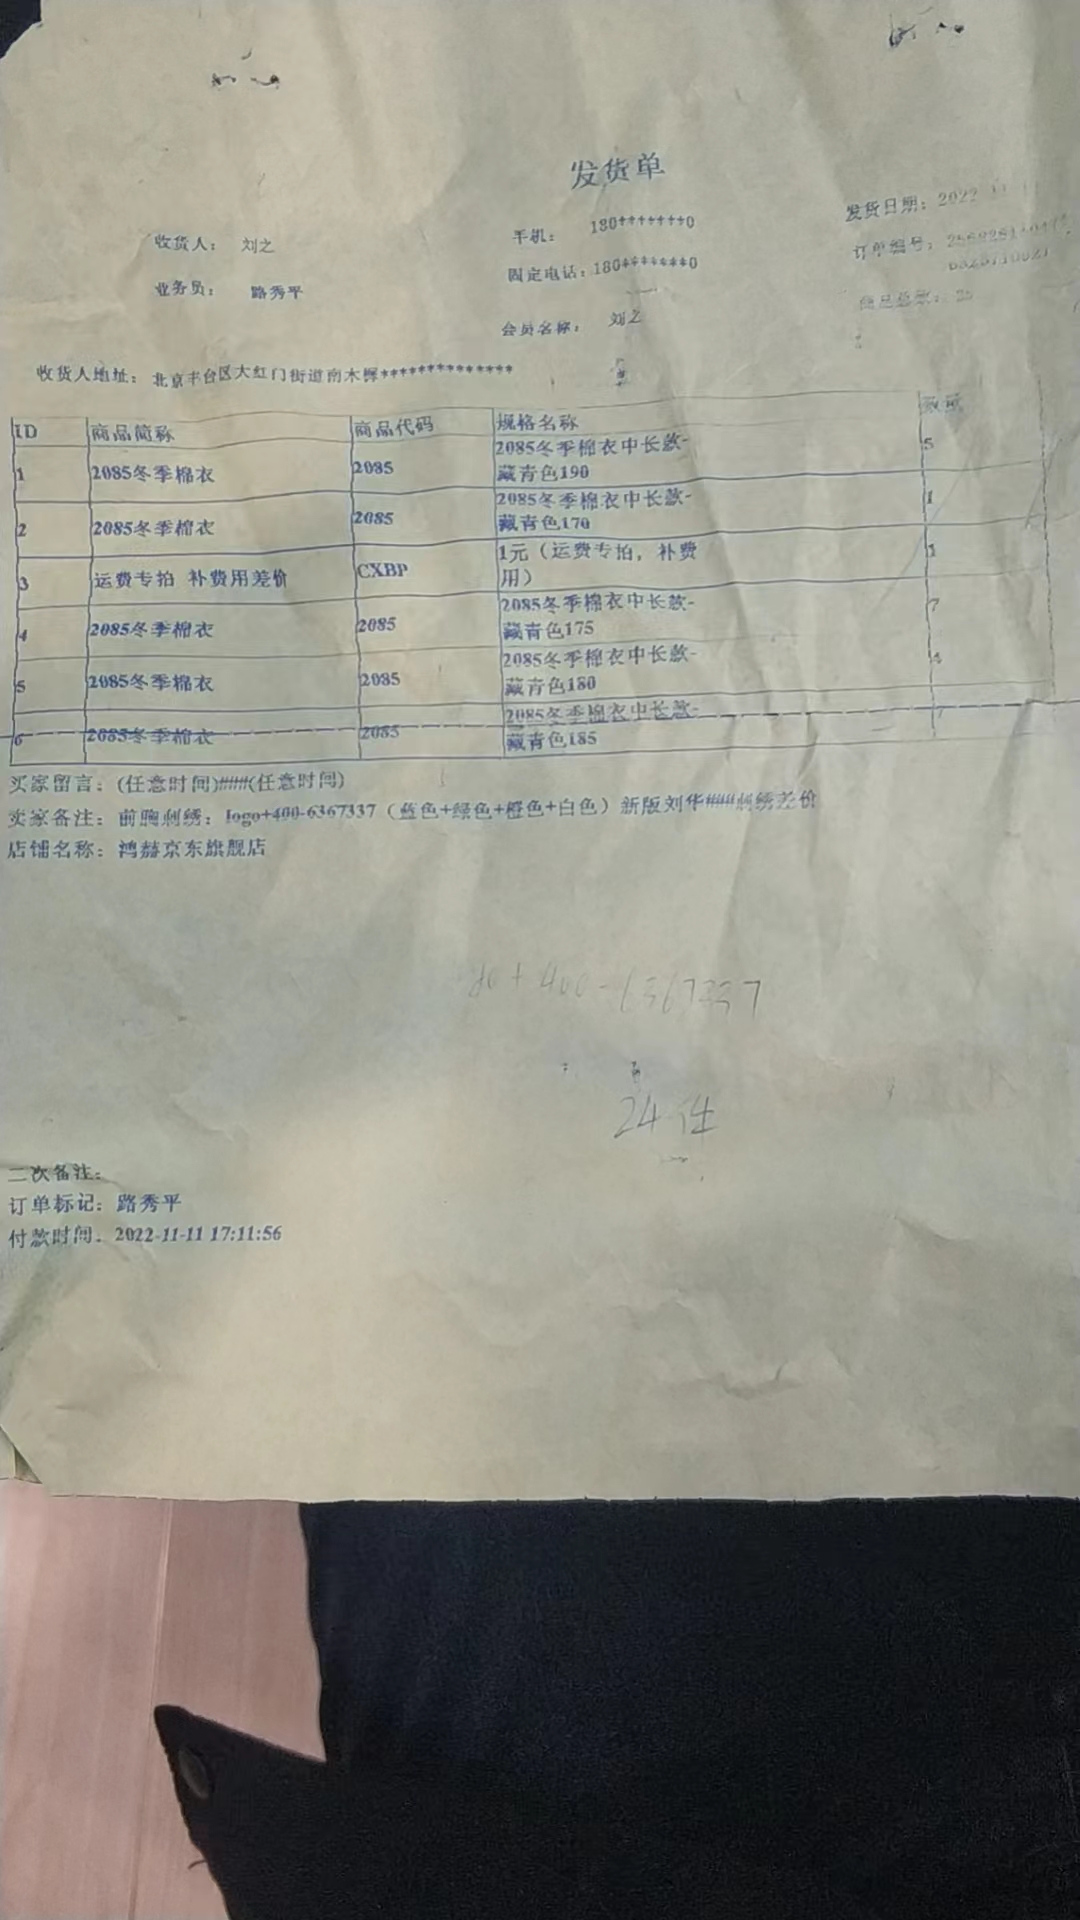 发货单
收货人： 刘之 手机： 180*******0 发货日期：2022
业务员： 路秀平 固定电话：180*******0 订单编号：
会员名称： 刘之
收货人地址： 北京丰台区大红门街道南木樨**************
ID 商品简称 商品代码 规格名称 数量
1 2085冬季棉衣 2085 2085冬季棉衣中长款- 5
藏青色190
2 2085冬季棉衣 2085 2085冬季棉衣中长款- 1
藏青色170
3 运费专拍 补费用差价 CXBP 1元（运费专拍，补费 1
用）
4 2085冬季棉衣 2085 2085冬季棉衣中长款- 7
藏青色175
5 2085冬季棉衣 2085 2085冬季棉衣中长款-
藏青色180
6 2085冬季棉衣 2085 2085冬季棉衣中长款-
藏青色185
买家留言：(任意时间)###(任意时间)
卖家备注：前胸刺绣：logo+400-6367337（蓝色+绿色+橙色+白色）新版刘华###刺绣差价
店铺名称：鸿赫京东旗舰店
+400-6367337
24件
二次备注：
订单标记：路秀平
付款时间：2022-11-11 17:11:56